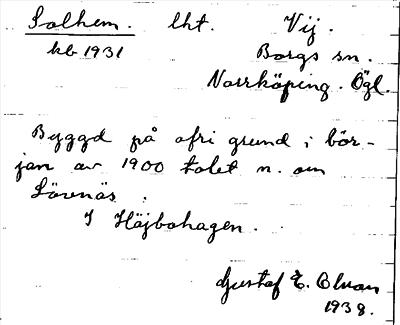 Solhem. lht. Vij.
kb 1931 Borgs sn.
Norrköping. Ögl.
Byggd på ofri grund i bör-
jan av 1900 talet n. om
Lövnäs.
I Höjbohagen.
Gustaf E. Olsson
1938.